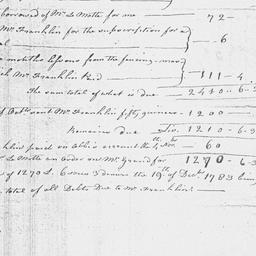 borrowed of Mr. L. Motte for me 72 -
Mr Franklin for the subscription for a
6
months lessons from the fencing-mas
ich Mr Franklin paid 111 - 4
The sum total of what is due 2410 - 6-3
of Octbr sent Mr Franklin fifty guineas 1200
Remains due Liv. 1210 - 6-3
klin paid on account the 4th Novr 60
L. Motte an order on Mr Grand for 1270 - 6-3
of 1270 L. 6 sous 3 deniers the 19th of Decr. 1783 being
total of all Debts due to Mr Franklin